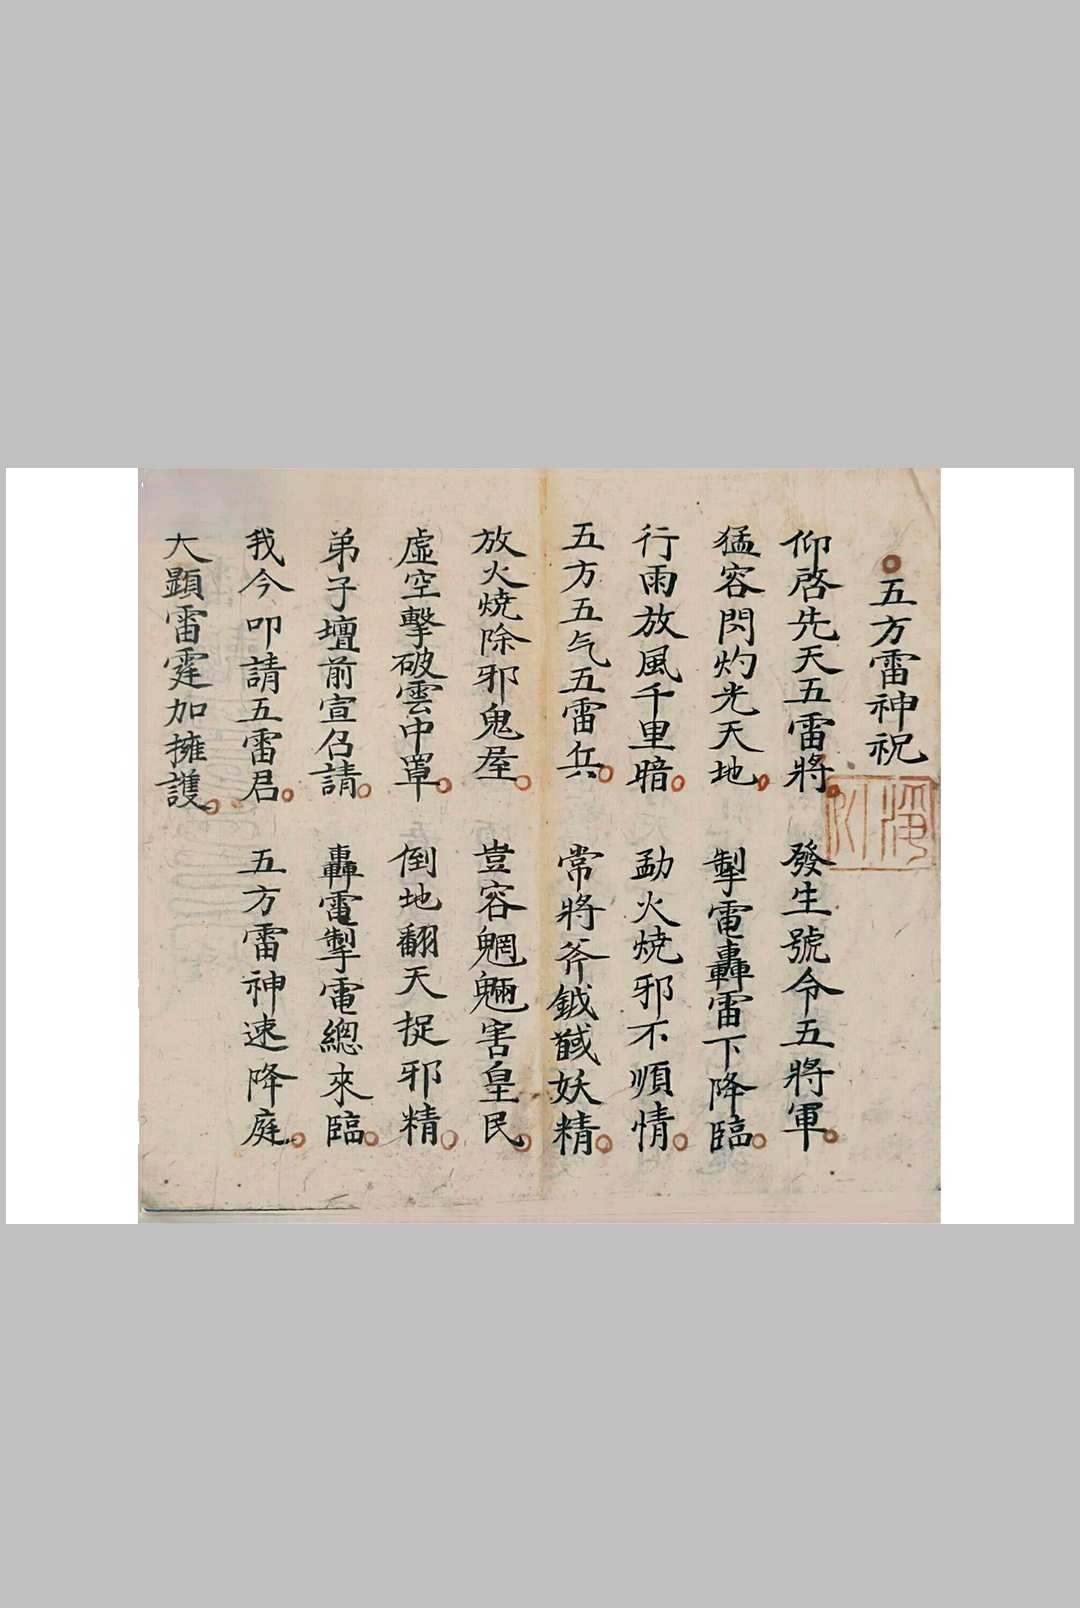 五方雷神祝
仰啓先天五雷將 發生號令五將軍
猛容閃灼光天地 掣電轟雷下降臨
行雨放風千里暗 勐火燒邪不順情
五方五气五雷兵 常將斧鉞馘妖精
放火燒除邪鬼屋 豈容魍魎害皇民
虛空擊破雲中罩 倒地翻天捉邪精
弟子壇前宣召請 轟電掣電總來臨
我今叩請五雷君 五方雷神速降庭
大顕雷霆加擁護